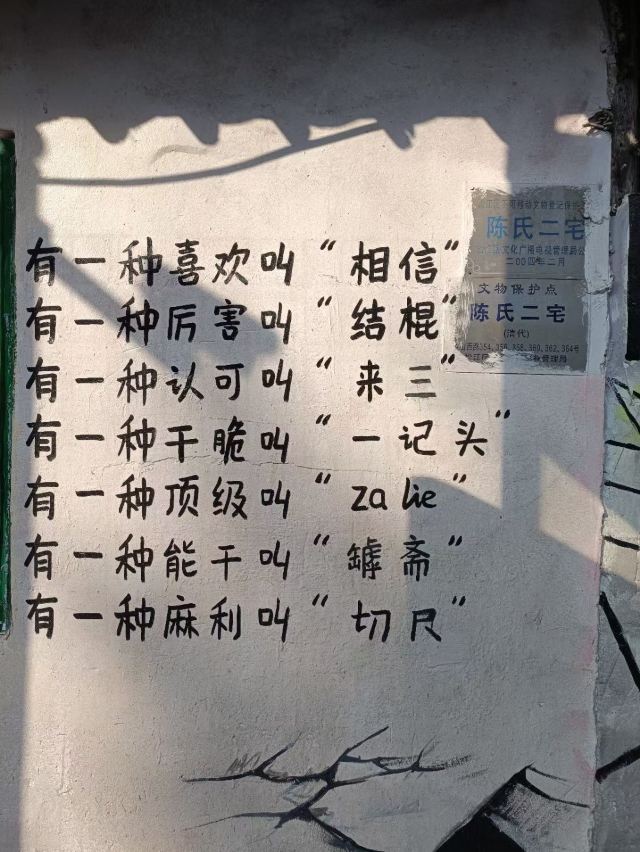 有一种喜欢叫“相信”
有一种厉害叫“结棍”
有一种认可叫“来三”
有一种干脆叫“一记头”
有一种顶级叫“za lie”
有一种能干叫“罅斋”
有一种麻利叫“切尺”
不可移动文物登记保护
陈氏二宅
文化广播电视管理局
二00四年二月
文物保护点
陈氏二宅
(清代)
354,356,358,360,362,364号
管理局